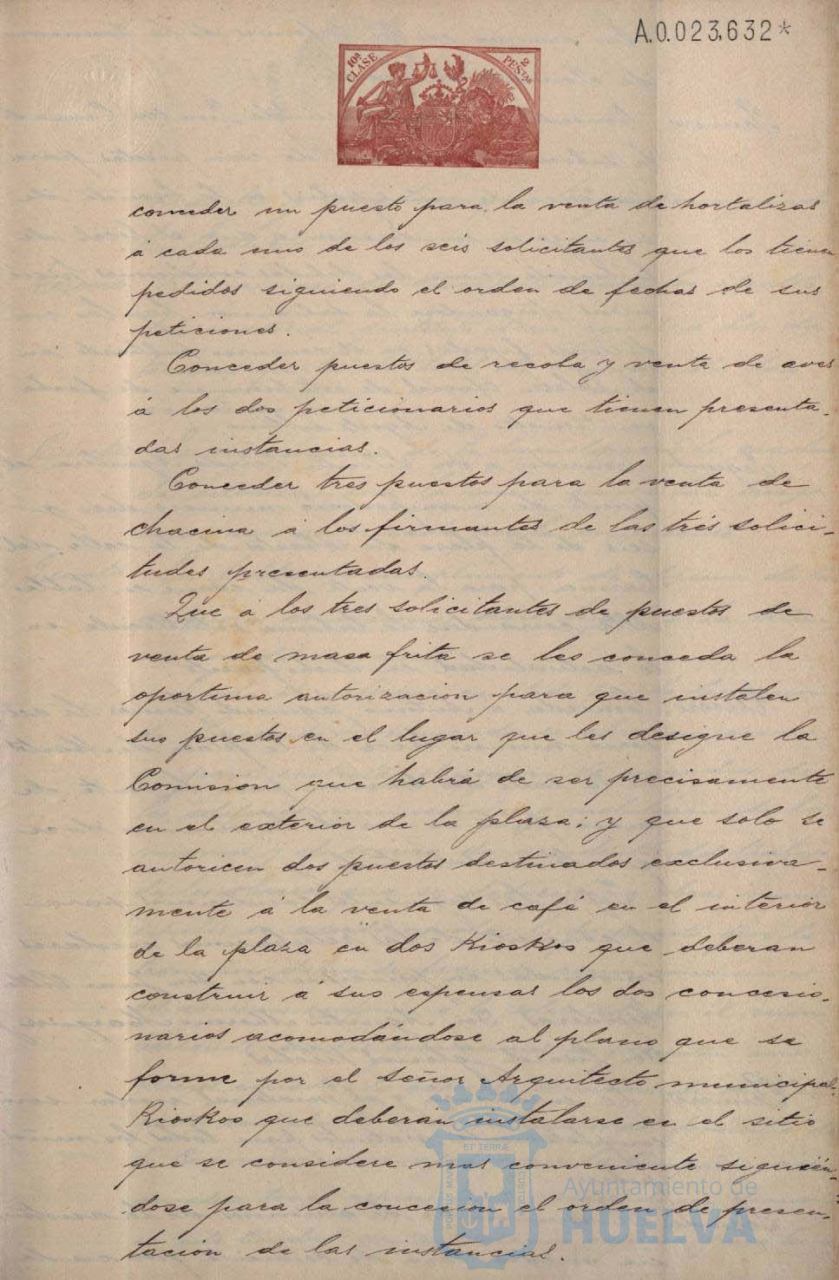 A.0.023,632*
10ª CLASE
2 PESTAS
conceder un puesto para la venta de hortalizas
á cada uno de los seis solicitantes que los tienen
pedidos siguiendo el orden de fechas de sus
peticiones.
Conceder puestos de recoba y venta de aves
á los dos peticionarios que tienen presenta-
das instancias.
Conceder tres puestos para la venta de
chacina á los firmantes de las tres solici-
tudes presentadas.
Que á los tres solicitantes de puestos de
venta de masa frita se les conceda la
oportuna autorizacion para que instalen
sus puestos en el lugar que les designe la
Comision que habrá de ser precisamente
en el exterior de la plaza; y que solo se
autoricen dos puestos destinados exclusiva-
mente á la venta de café en el interior
de la plaza en dos Kioskos que deberan
construir á sus espensas los dos concesio-
narios acomodándose al plano que se
forme por el señor Arquitecto municipal
Kioskos que deberan instalarse en el sitio
que se considere mas conveniente siguién-
dose para la concesion el orden de presen-
tacion de las instancias.
Ayuntamiento de
HUELVA